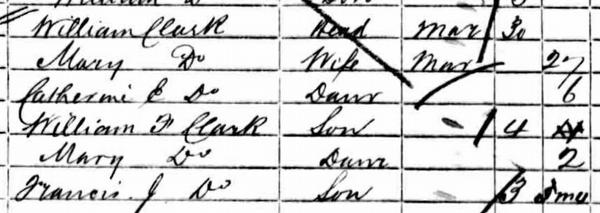 William Clark Head Mar 30
Mary Do Wife Mar 27
Catherine E Do Daur 6
William F Clark Son 4
Mary Do Daur 2
Francis J Do Son 3 mo